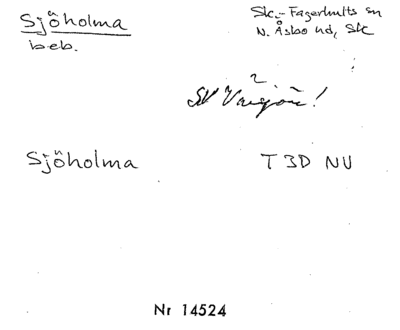 Sjöholma
beb.
Sk.- Fagerhults sn
N. Åsbo hd, Sk
2
SV
Sjöholma
T 3D NU
Nr 14524